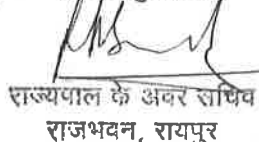 राज्यपाल के अवर सचिव
राजभवन, रायपुर